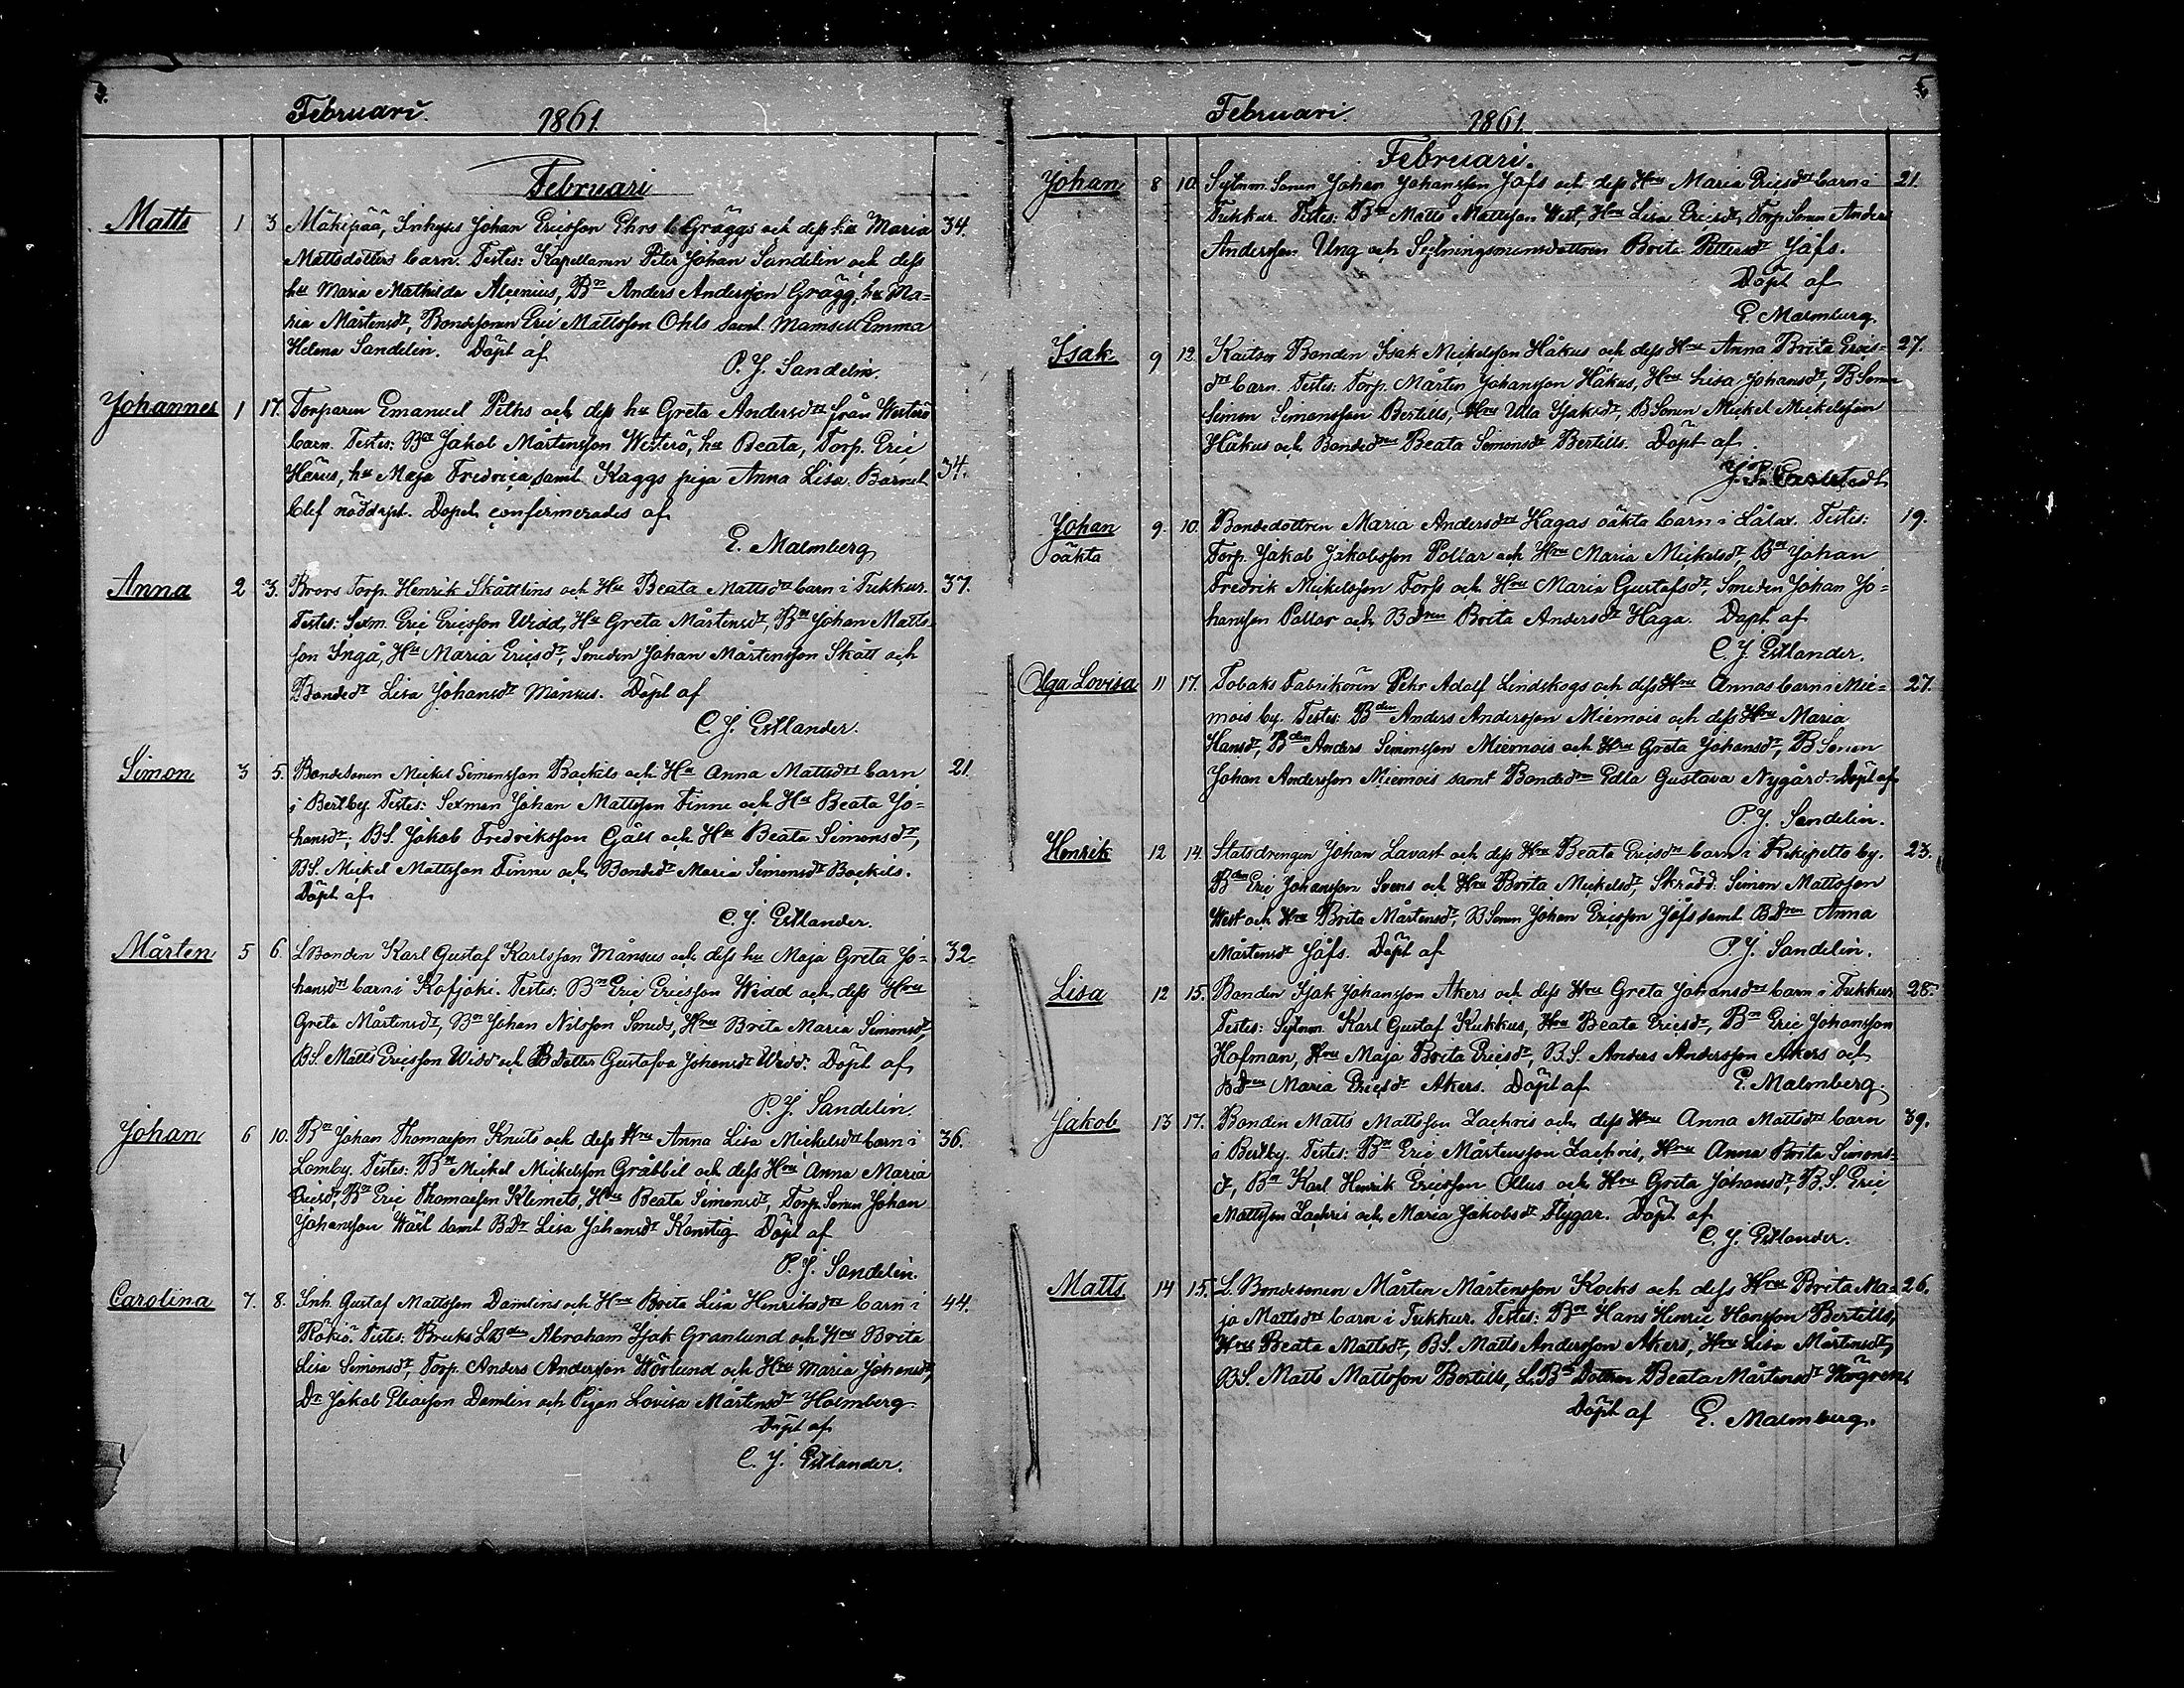 Februari. 1861.
Februari
Matts 1 3. Mäkipää, Inhyses Johan Ericsson Ehrs l. Gräggs och dess hu Maria 34.
Mattsdotters barn. Testes: Kapellanen Peter Johan Sandelin och dess
hu Maria Mathilda Alcenius, Bn Anders Andersson Grägg, hu Ma=
ria Mårtensdr, Bondesonen Eric Mattsson Ohls samt Mamsell Emma
Helena Sandelin. Döpt af
P. J. Sandelin.
Johannes 1 17. Torparen Emanuel Peths och dess hu Greta Andersdrs från Westerö
barn. Testes: Bn Jakob Mårtensson Westerö, hu Beata, Torp. Eric
Härus, hu Maja Fredrica samt Kaggs piga Anna Lisa. Barnet 34.
blef nöddöpt. Dopet confirmerades af
E. Malmberg
Anna 2 3. Brors Torp. Henrik Skåttlins och Hu Beata Mattsdrs barn i Tukkur. 37.
Testes: Sexm. Eric Ericsson Widd, Hu Greta Mårtensdr, Bn Johan Matts
son Ingå, Hu Maria Ericsdr, Smeden Johan Mårtensson Skått och
Bondedr Lisa Johansdr Månsus. Döpt af
C. J. Estlander.
Simon 3 5. Bondesonen Mickel Simonsson Backils och Hu Anna Mattsdrs barn 21.
i Bertby. Testes: Sexman Johan Mattsson Finne och Hu Beata Jo=
hansdr, BS. Jakob Fredriksson Gäll och Hu Beata Simonsdr,
BS. Mickel Mattsson Finne och Bondedr Maria Simonsdr Backils.
Döpt af
C. J. Estlander.
Mårten 5 6. LBonden Karl Gustaf Karlsson Månsus och dess hu Maja Greta Jo= 32.
hansdrs barn i Kofjoki. Testes: Bn Eric Ericsson Widd och dess Hru
Greta Mårtensdr, Bn Johan Nilsson Smeds, Hru Brita Maria Simonsdr,
BS. Matts Ericsson Widd och BDotter Gustafva Johansdr Widd. Döpt af
P. J. Sandelin.
Johan 6 10. Bn Johan Thomasson Knuts och dess Hru Anna Lisa Mickelsdrs barn i 36.
Lomby. Testes: Bn Mickel Mickelsson Gräbbil och dess Hru Anna Maria
Ericsdr, Bn Eric Thomasson Klemets, Hru Beata Simonsdr, Torp. Sonen Johan
Johansson Wäst samt BDr Lisa Johansdr Konstig. Döpt af
P. J. Sandelin.
Carolina 7. 8. Inh. Gustaf Mattsson Damlins och Hru Brita Lisa Henriksdrs barn i 44.
Rökiö. Testes: Bruks LBden Abraham Isak Granlund och Hru Brita
Lisa Simonsdr, Torp. Anders Andersson Wörlund och Hru Maria Johansdr,
Dr Jakob Eliasson Damlin och Pigan Lovisa Mårtensdr Holmberg
Döpt af
C. J. Estlander.
Februari. 1861.
Februari.
Johan 8 10. Sytnm. Sonen Johan Johansson Jåfs och dess Hru Maria Ericsdrs barn i 21.
Tukkur. Testes: Bn Matts Mattsson West, Hru Lisa Ericsdr, Torp. Sonen Anders
Andersson Ung och Sytningsmansdottren Brita Pettersdr Jåfs.
Döpt af
E. Malmberg.
Isak 9 12. Kaitsor Bonden Isak Mickelsson Håkus och dess Hru Anna Brita Erics= 27.
drs barn. Testes: Torp. Mårten Johansson Håkus, Hru Lisa Johansdr, BSonen
Simon Simonsson Bertills, Hru Ulla Isaksdr, BSonen Mickel Mickelsson
Håkus och Bondedren Beata Simonsdr Bertills. Döpt af
Johan oäkta 9. 10. Bondedottren Maria Andersdrs Hagas oäkta barn i Lålax. Testes: 19.
Torp. Jakob Jakobsson Pollar och Hru Maria Mickelsdr, Bn Johan
Fredrik Mickelsson Torss och Hru Maria Gustafsdr, Smeden Johan Jo=
hansson Pollar och BDren Brita Andersdr Haga. Döpt af
C. J. Estlander.
Olga Lovisa 11 17. Tobaks Fabrikören Pehr Adolf Lindskogs och dess Hru Annas barn i Mie= 27.
mois by. Testes: Bden Anders Andersson Miemois och dess Hru Maria
Hansdr, Bden Anders Simonsson Miemois och Hru Greta Johansdr, BSonen
Johan Andersson Miemois samt Bondedren Edla Gustava Nygård. Döpt af
P. J. Sandelin.
Henrik 12 14. Statsdrengen Johan Lavast och dess Hru Beata Ericsdrs barn i Rekipelto by. 23.
Bden Eric Johansson Svens och Hru Brita Mickelsdr, Skrädd. Simon Mattsson
West och Hru Brita Mårtensdr, BSonen Johan Ericsson Jåfs samt BDren Anna
Mårtensdr Jåfs. Döpt af P. J. Sandelin.
Lisa 12 15. Bonden Isak Johansson Akers och dess Hru Greta Johansdrs barn i Tukkur 28.
Testes: Sytnm. Karl Gustaf Kukkus, Hru Beata Ericsdr, Bn Eric Johansson
Hofman, Hru Maja Brita Ericsdr, B.S. Anders Andersson Akers och
BDren Maria Ericsdr Akers. Döpt af E. Malmberg.
Jakob 13 17. Bonden Matts Mattsson Lachris och dess Hru Anna Mattsdrs barn 39.
i Bertby. Testes: Bn Eric Mårtensson Lachris, Hru Anna Brita Simons=
dr, Bn Karl Henrik Ericsson Ollus och Hru Greta Johansdr, B.S. Eric
Mattsson Lachris och Maria Jakobsdr Flygar. Döpt af
C. J. Estlander.
Matts 14 15. L. Bondesonen Mårten Mårtensson Kocks och dess Hru Brita Ma= 26.
ja Mattsdrs barn i Tukkur. Testes: Bn Hans Henric Hansson Bertills,
Hru Beata Mattsdr, BS. Matts Andersson Akers, Hru Lisa Mårtensdr,
BS. Matts Mattsson Bertills, L.Bde Dottren Beata Mårtensdr Wörgrens
Döpt af E. Malmberg.